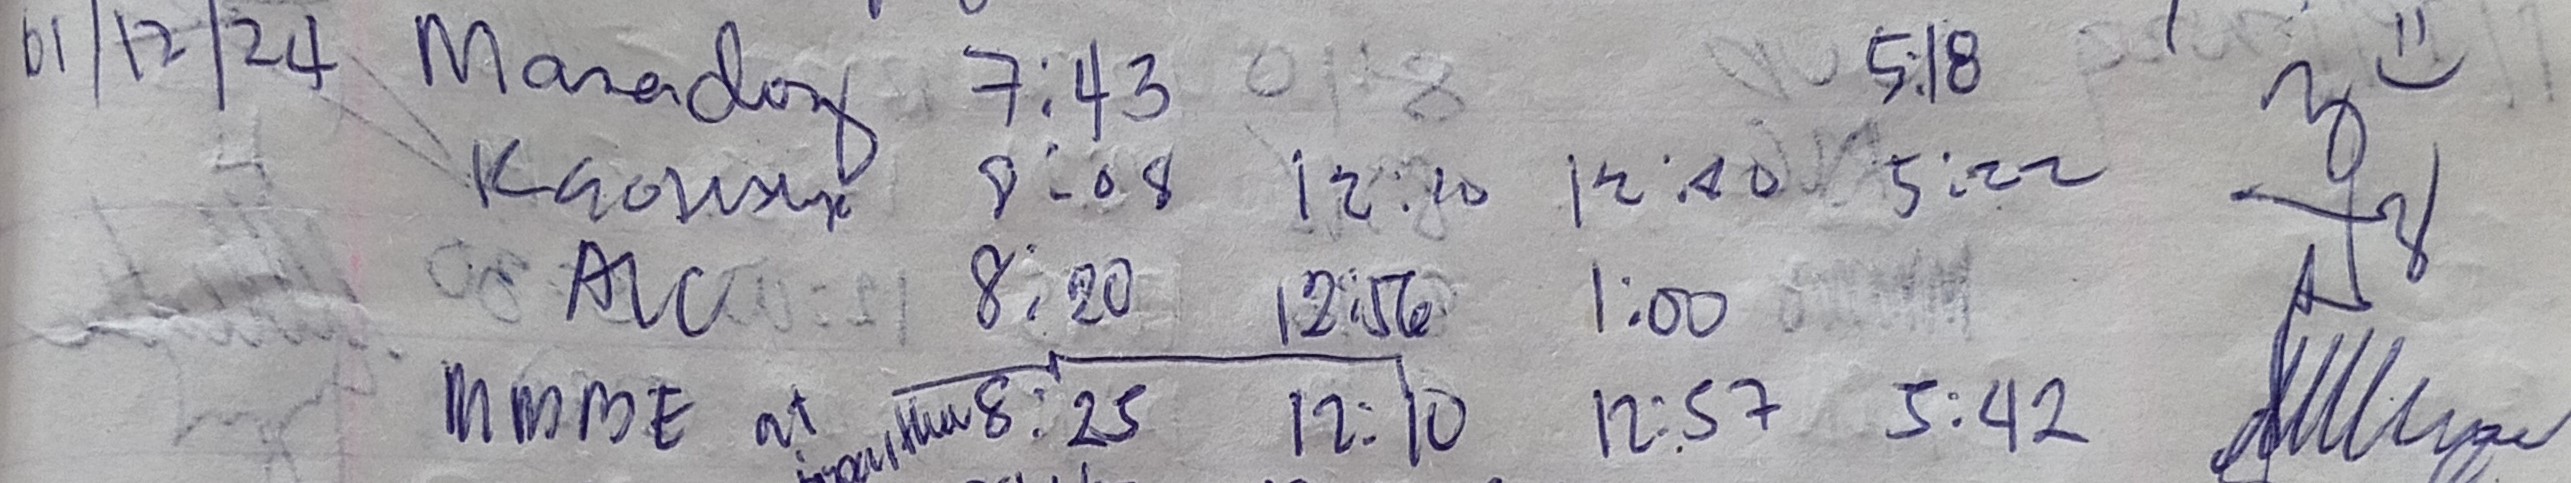 01/12/24 Manadong 7:43 5:18
8:08 12:10 12:40 5:22
AVC 8:20 12:56 1:00
MMBE at 8:25 12:10 12:57 5:42